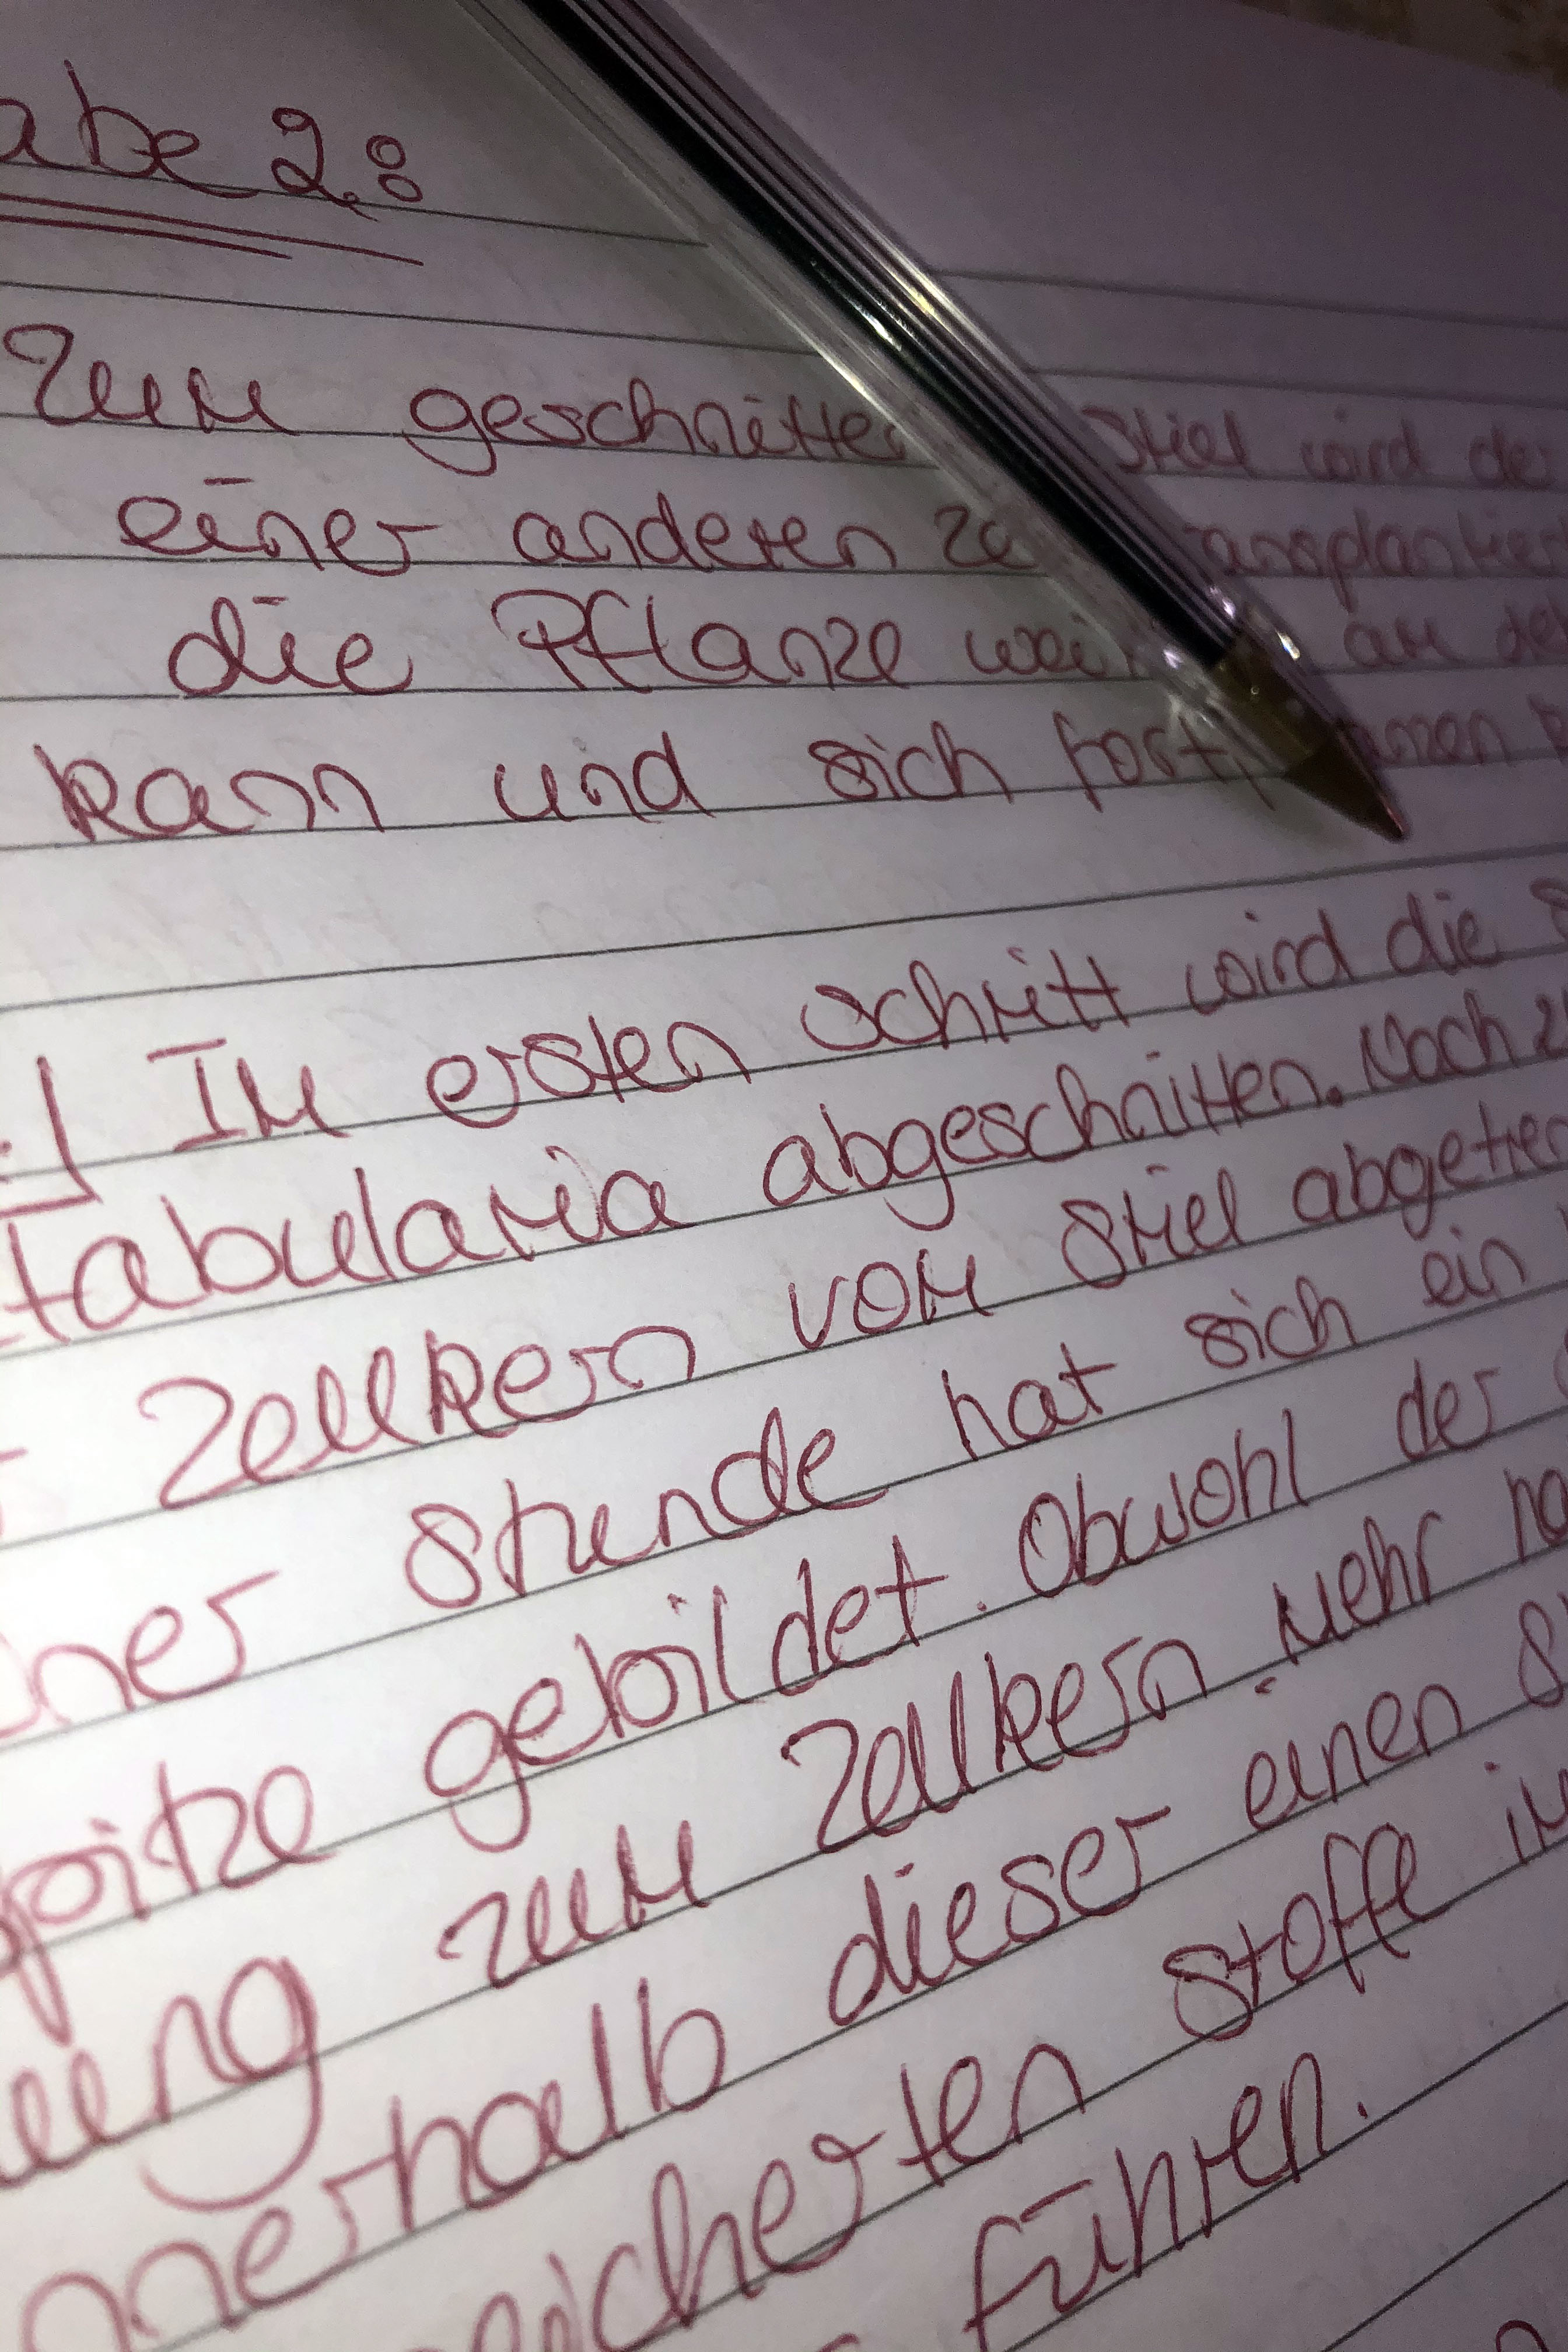 abe 2.:
Zum geschnitten Stiel wird de
einer anderen Ze ansplantier
die Pflanze wei am de
kann und sich fort anzen k
Im ersten schritt wird die S
tabularia abgeschnitten. Nach zw
Zellkern vom Stiel abgetren
iner Stunde hat sich ein
pitze gebildet. Obwohl der
ung zum Zellkern mehr ha
nnerhalb dieser einen S
eicherten Stoffe im
führen.